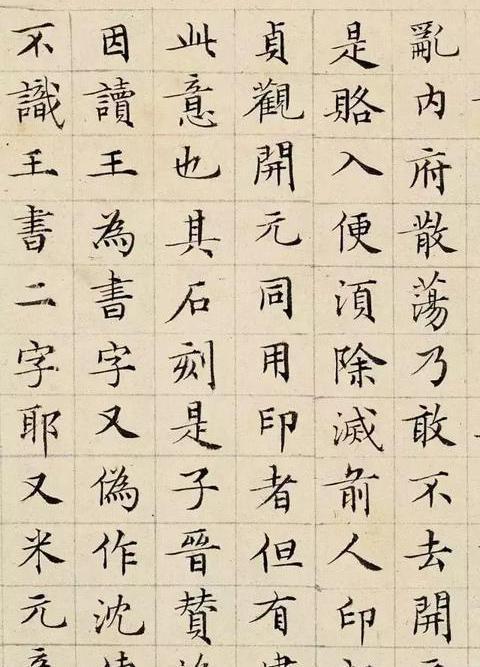 亂内府散蕩乃敢不去開
是賂入便須除滅前人印
貞觀開元同用印者但有
此意也其石刻是子晉賛
因讀王為書字又偽作沈
不識王書二字耶又米元